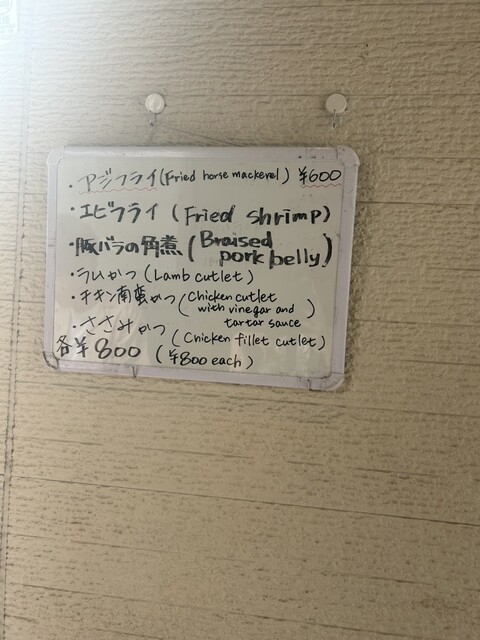 ・アジフライ(Fried horse mackerel) ¥600
・エビフライ (Fried shrimp)
・豚バラの角煮 (Braised pork belly)
・ラムかつ (Lamb cutlet)
・チキン南蛮かつ (Chicken cutlet with vinegar and tartar sauce)
・ささみかつ (Chicken fillet cutlet)
各¥800 (¥800 each)